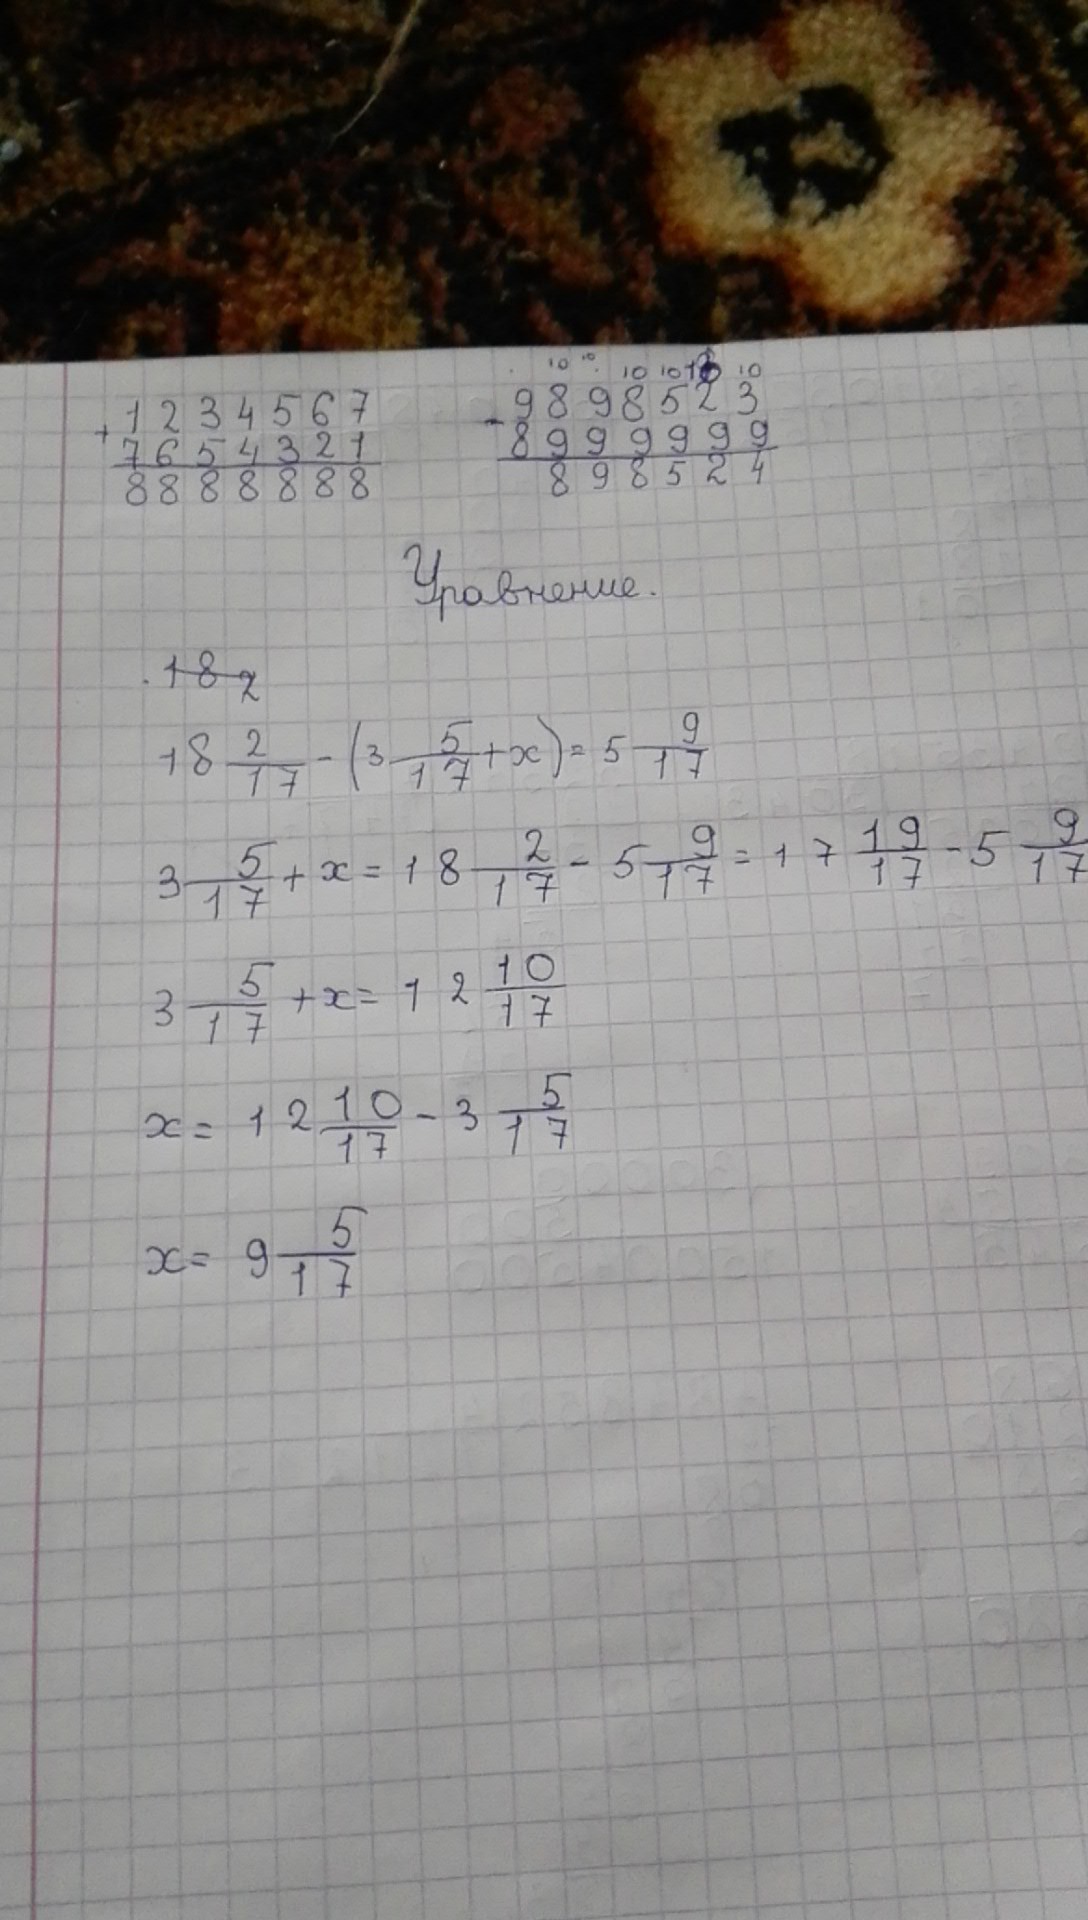 + 1234567
7654321
8888888
10 10 10 10 10 10
- 9898523
8999999
898524
Уравнение.
18 2
18 2/17 - (3 5/17 + x) = 5 9/17
3 5/17 + x = 18 2/17 - 5 9/17 = 17 19/17 - 5 9/17
3 5/17 + x = 12 10/17
x = 12 10/17 - 3 5/17
x = 9 5/17